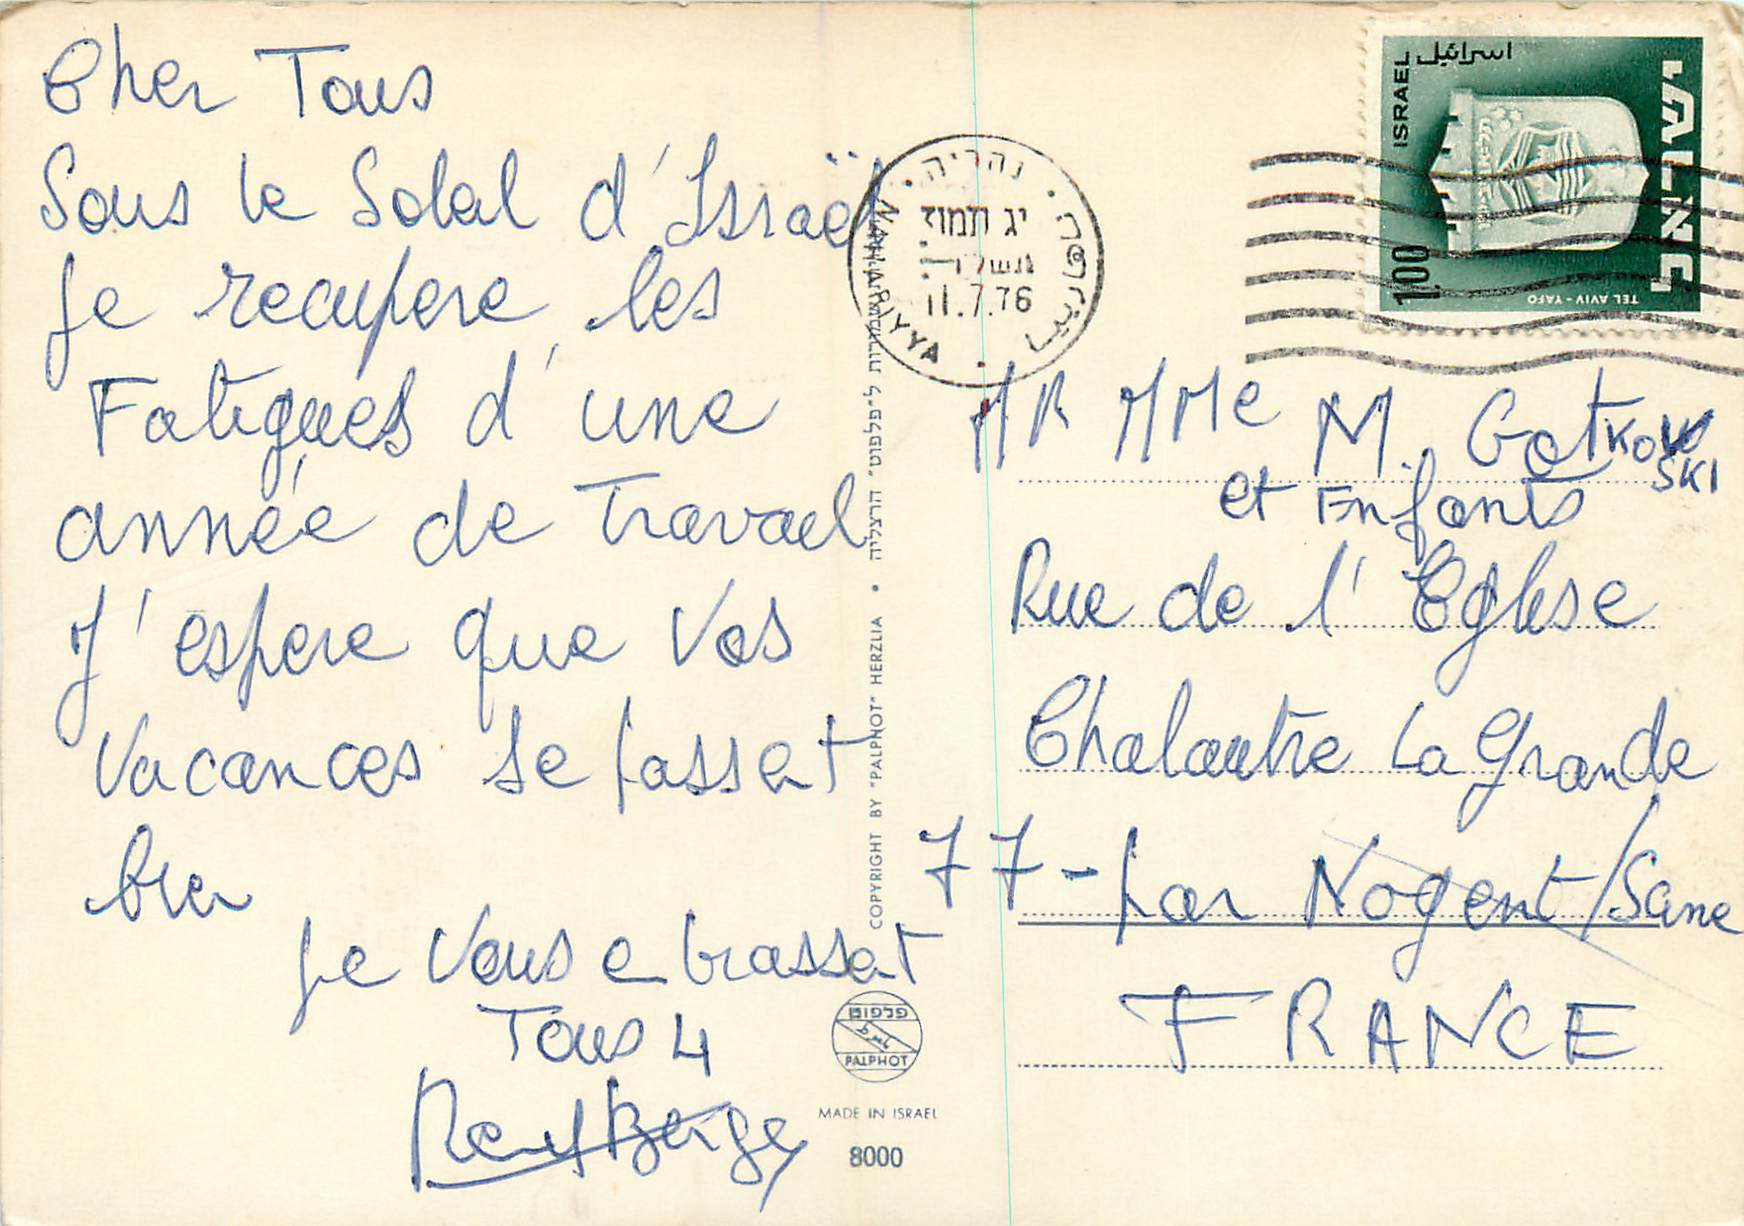 Cher Tous
Sous le Solal d'Israël
Je recupere les
Fatigues d'une
année de Travael
J'espere que Vos
Vacances se passet
bien
Je Vous e brasset
Tous 4
ISRAEL
اسرائيل
ישראל
1.00
TEL AVIV - YAFO
נהריה
יג תמוז
תשל"ו
11.7.76
NAHARIYYA
MR MMe M. Gotkow
SKI
et Enfants
Rue de l'Eglise
Chalautre La Grande
77 - par Nogent/Sane
FRANCE
COPYRIGHT BY "PALPHOT" HERZLIA • "פלפוט" הרצליה
פלפוט
PALPHOT
MADE IN ISRAEL
8000